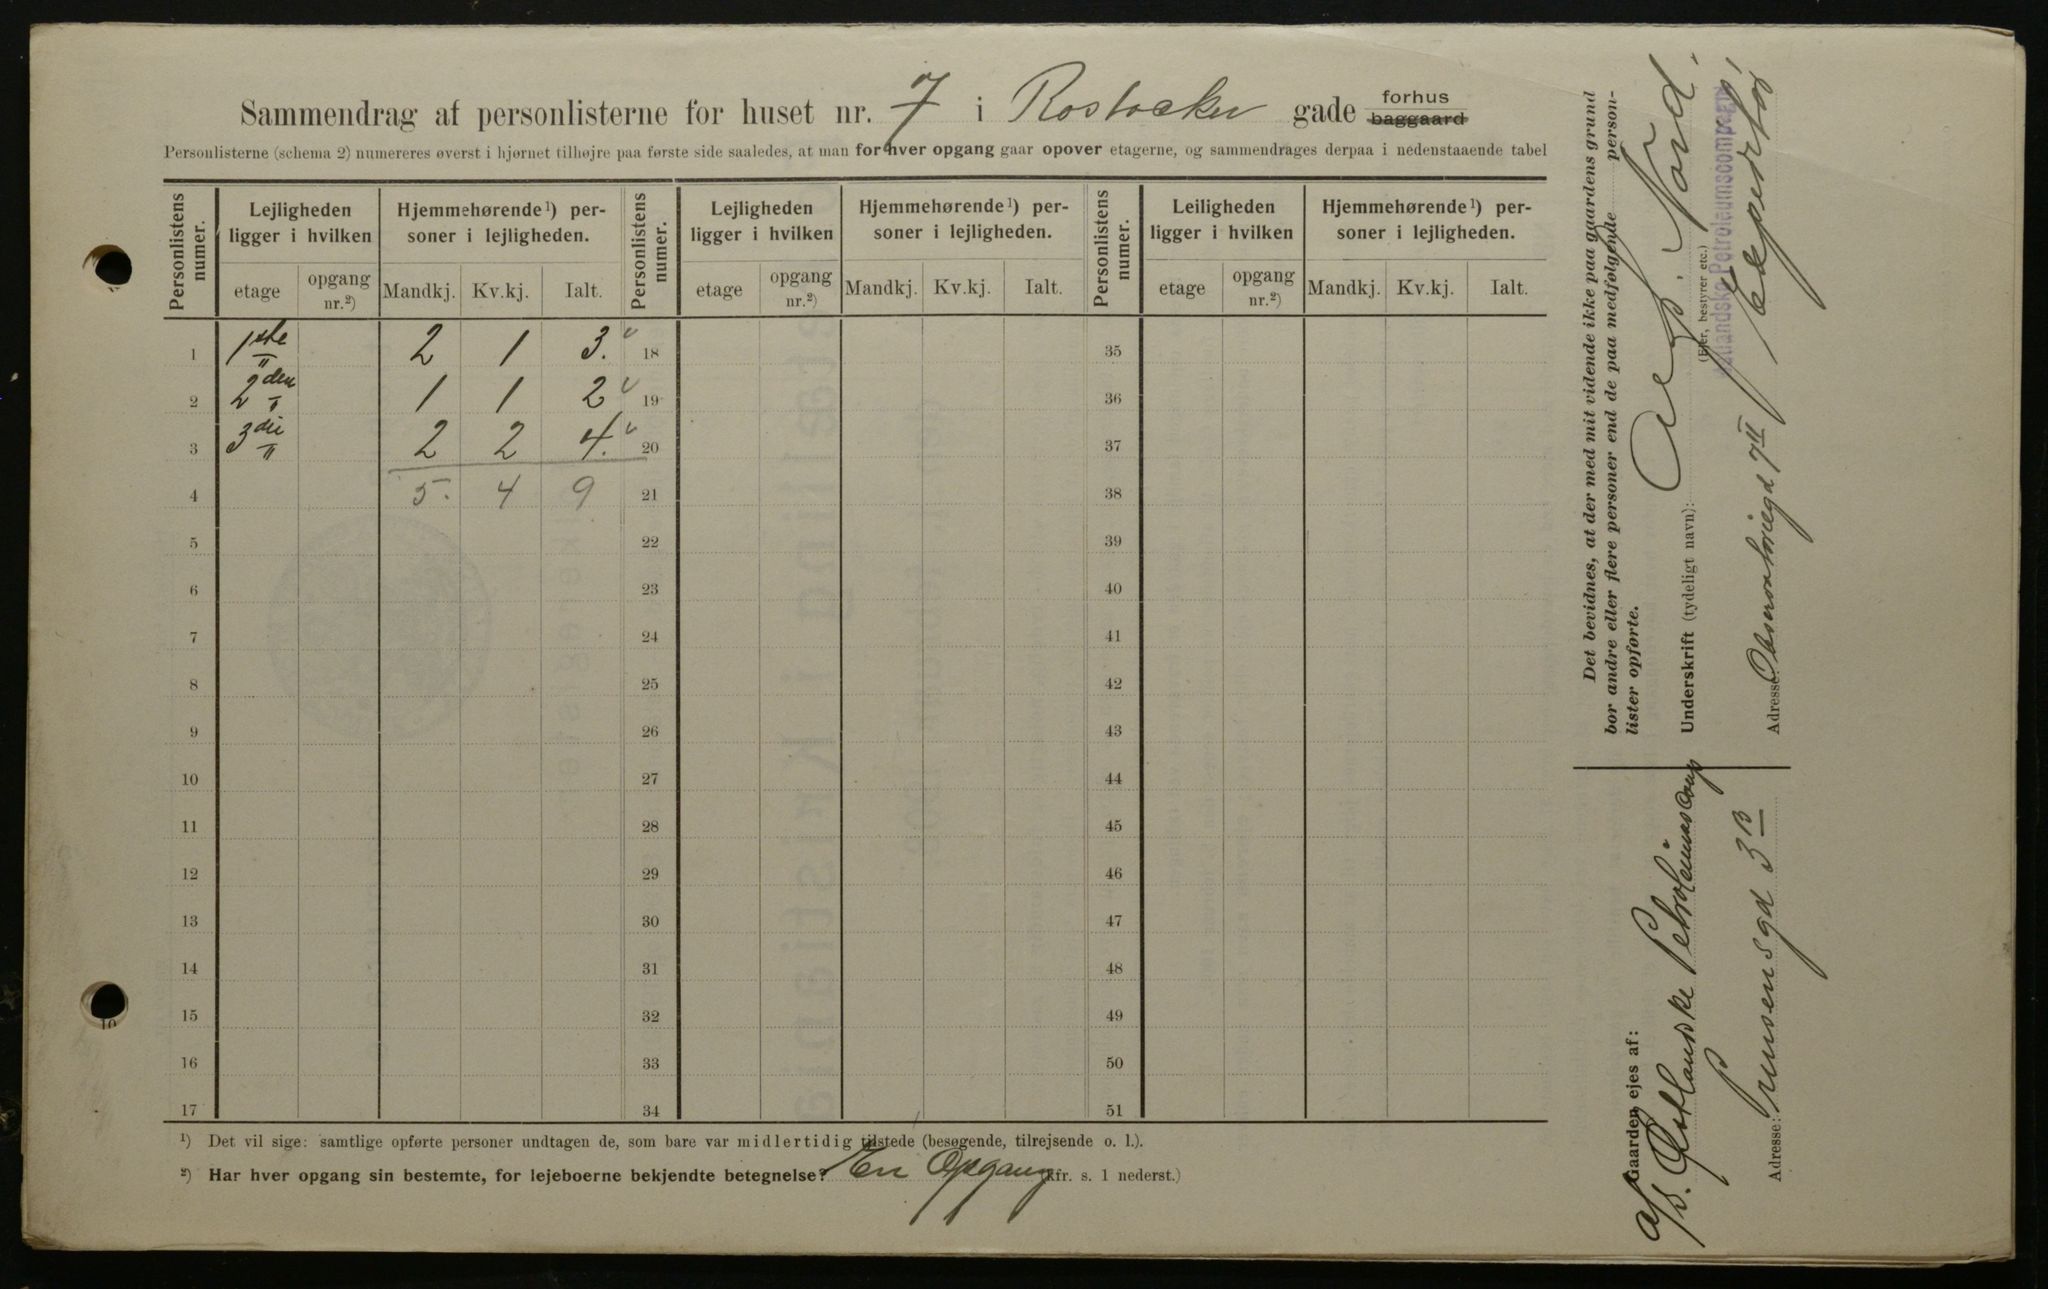 Sammendrag af personlisterne for huset nr. 7 i Rostocker gade forhus baggaard
Personlisterne (schema 2) numereres øverst i hjørnet tilhøjre paa første side saaledes, at man for hver opgang gaar opover etagerne, og sammendrages derpaa i nedenstaaende tabel
Personlistens numer. Lejligheden ligger i hvilken Hjemmehørende¹) personer i lejligheden. Personlistens numer. Lejligheden ligger i hvilken Hjemmehørende¹) personer i lejligheden. Personlistens numer. Leiligheden ligger i hvilken Hjemmehørende¹) personer i lejligheden.
etage opgang nr.²) Mandkj. Kv.kj. Ialt. etage opgang nr.²) Mandkj. Kv.kj. Ialt. etage opgang nr.²) Mandkj. Kv.kj. Ialt.
1 1ste 2 1 3. 18 35
2 2den " 1 1 2 19 36
3 3die " 2 2 4. 20 37
4 5. 4 9 21 38
5 22 39
6 23 40
7 24 41
8 25 42
9 26 43
10 27 44
11 28 45
12 29 46
13 30 47
14 31 48
15 32 49
16 33 50
17 34 51
¹) Det vil sige: samtlige opførte personer undtagen de, som bare var midlertidig tilstede (besøgende, tilrejsende o. l.).
²) Har hver opgang sin bestemte, for lejeboerne bekjendte betegnelse? En Opgang (kfr. s. 1 nederst.)
Det bevidnes, at der med mit vidende ikke paa gaardens grund
bor andre eller flere personer end de paa medfølgende personlister opførte.
Underskrift (tydeligt navn): Aug. Nord.
(Ejer, bestyrer etc.)
Østlandske Petroleumscompagni
Adresse: Observatoriegd 7 II
Gaarden ejes af:
A/S. Østlandske Petroleumscomp
Adresse: Prinsensgd 3 B